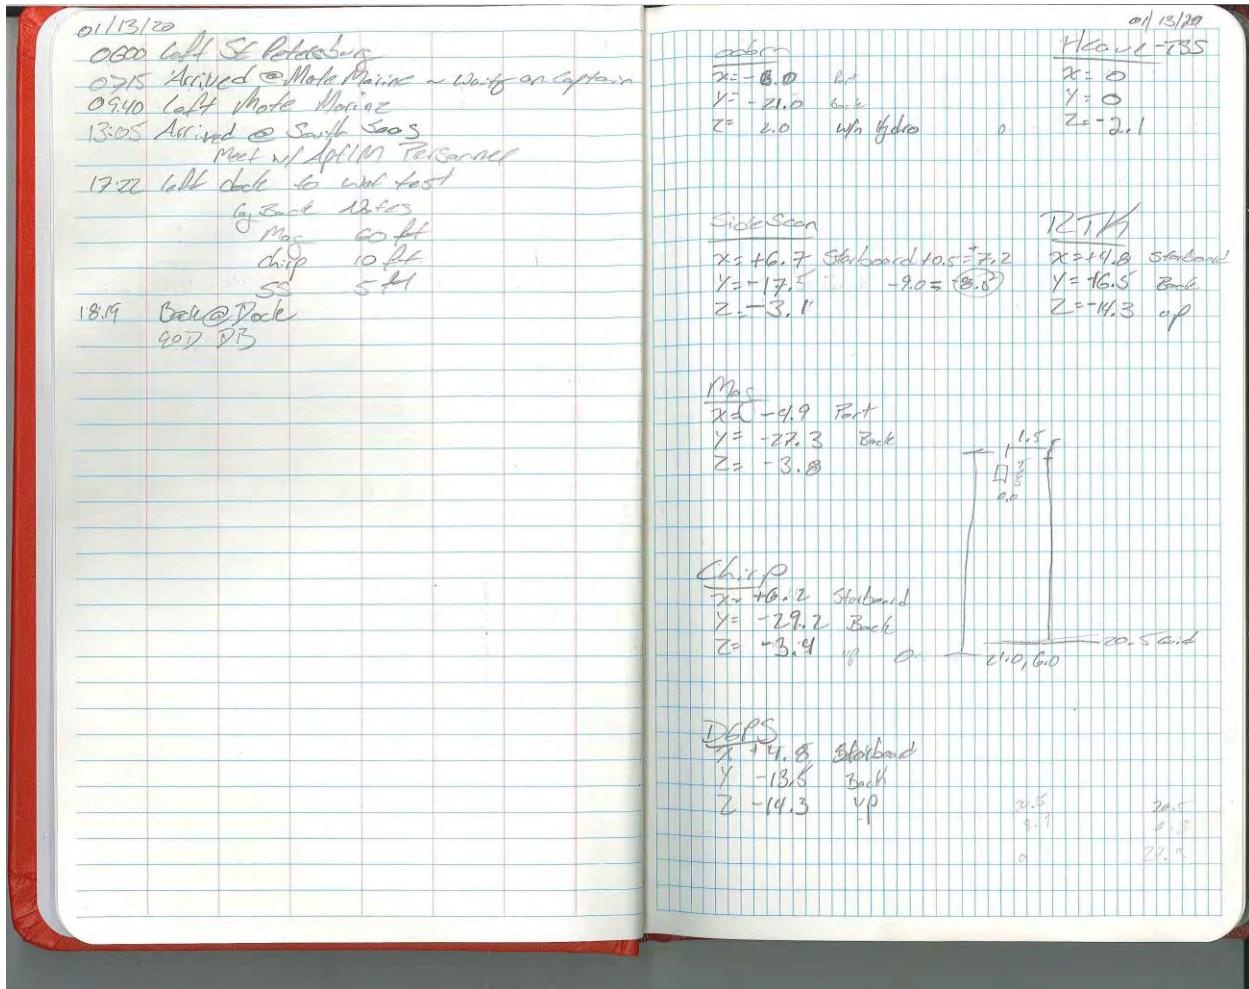 01/13/20
0600 Left St Petersburg
0715 Arrived @ Mote Marine ~ Waitg on Captain
0940 Left Mote Marine
13:05 Arrived @ South Seas
Meet w/ APTIM Personnel
17:22 left dock to wet test
Notes
Mag 60 ft
chirp 10 ft
SS 5 ft
18:19 Back @ Dock
DB
01/13/20
odom
X= -6.0 Port
Y= -21.0 back
Z= 2.0 w/n Hydro 0
Heave -TSS
X= 0
Y= 0
Z= -2.1
SideScan
X= +6.7 Starboard +0.5= +7.2
Y= -17.5 -9.0=
Z= -3.1
RTK
X= +4.8 Starboard
Y= +6.5 Back
Z= -14.3 up
Mag
X= -4.9 Port
Y= -27.3 Back
Z= -3.8
1.5
0.0
Chirp
X= +6.2 Starboard
Y= -29.2 Back
Z= -3.4 up 0
20.5
21.0, 6.0
DGPS
X +4.8 Starboard
Y -13.5 Back
Z -14.3 up
20.5